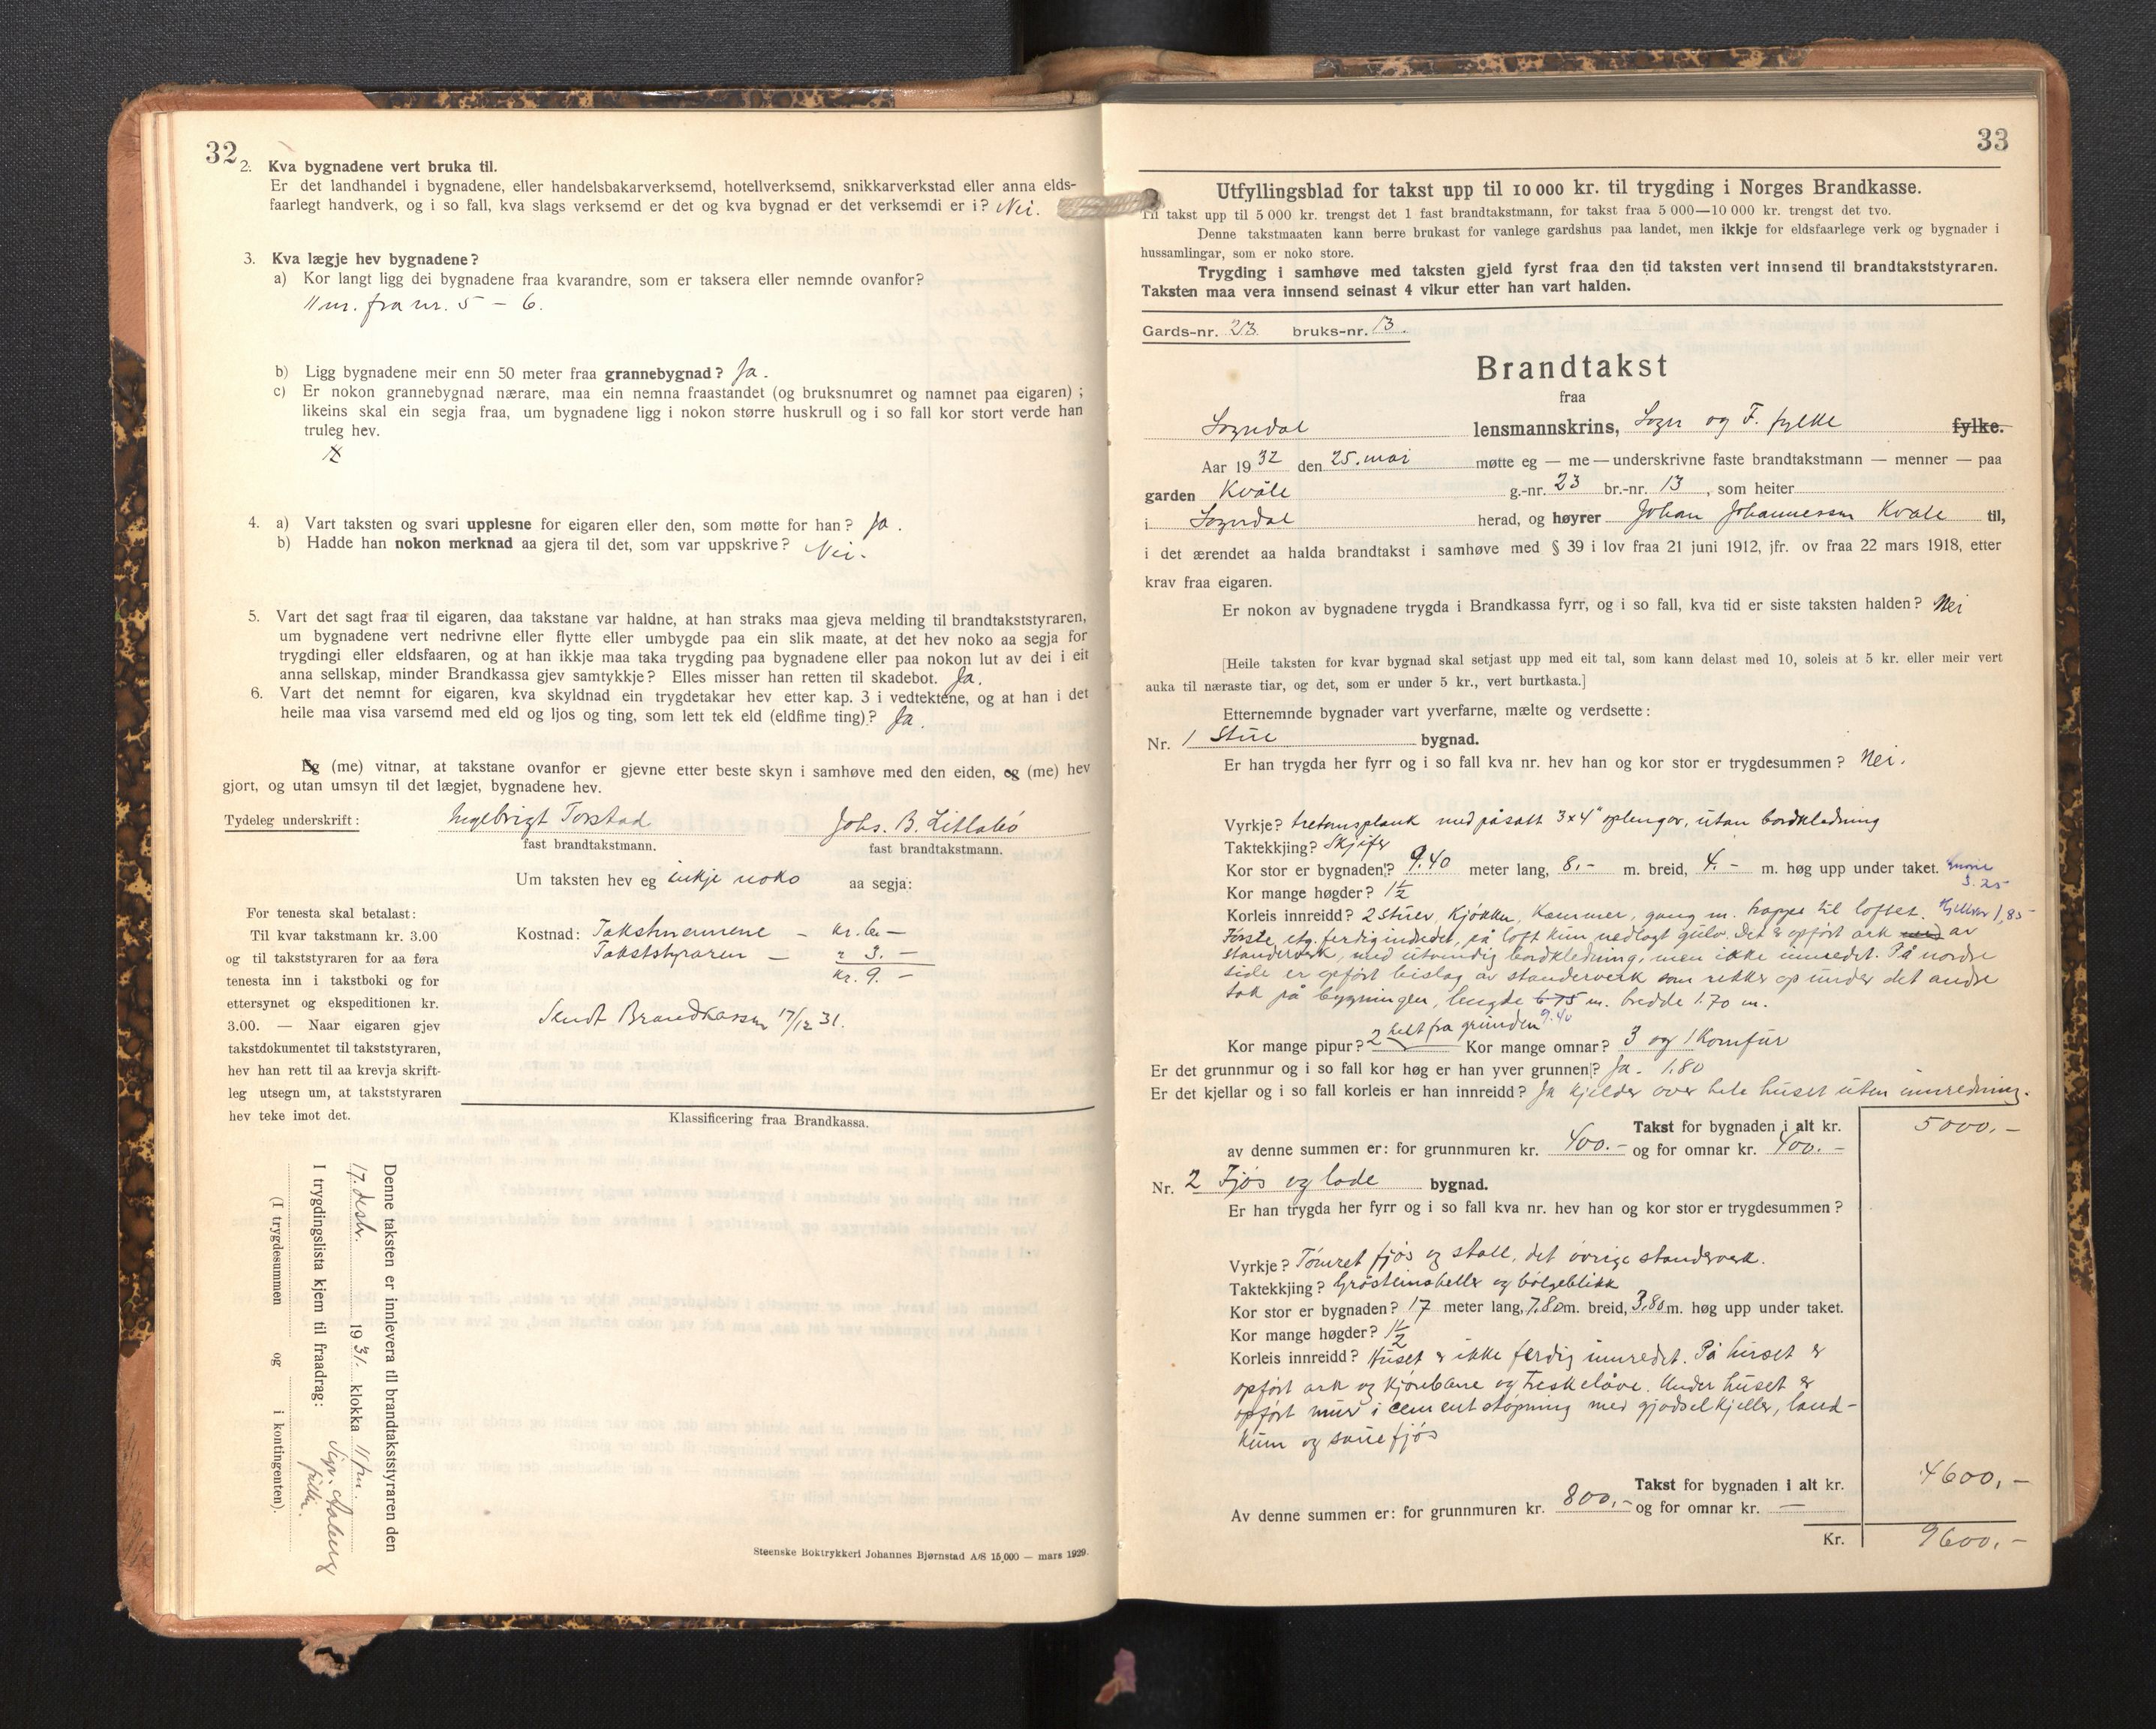 32
2. Kva bygnadene vert bruka til.
Er det landhandel i bygnadene, eller handelsbakarverksemd, hotellverksemd, snikkarverkstad eller anna elds-
faarlegt handverk, og i so fall, kva slags verksemd er det og kva bygnad er det verksemdi er i? Nei.
3. Kva lægje hev bygnadene?
a) Kor langt ligg dei bygnadene fraa kvarandre, som er taksera eller nemnde ovanfor?
11 m. fra nr. 5 - 6.
b) Ligg bygnadene meir enn 50 meter fraa grannebygnad? Ja.
c) Er nokon grannebygnad nærare, maa ein nemna fraastandet (og bruksnumret og namnet paa eigaren);
likeins skal ein segja fraa, um bygnadene ligg i nokon større huskrull og i so fall kor stort verde han
truleg hev.
4. a) Vart taksten og svari upplesne for eigaren eller den, som møtte for han? Ja.
b) Hadde han nokon merknad aa gjera til det, som var uppskrive? Nei.
5. Vart det sagt fraa til eigaren, daa takstane var haldne, at han straks maa gjeva melding til brandtakststyraren,
um bygnadene vert nedrivne eller flytte eller umbygde paa ein slik maate, at det hev noko aa segja for
trygdingi eller eldsfaaren, og at han ikkje maa taka trygding paa bygnadene eller paa nokon lut av dei i eit
anna sellskap, minder Brandkassa gjev samtykkje? Elles misser han retten til skadebot. Ja.
6. Vart det nemnt for eigaren, kva skyldnad ein trygdetakar hev etter kap. 3 i vedtektene, og at han i det
heile maa visa varsemd med eld og ljos og ting, som lett tek eld (eldfime ting)? Ja.
Eg (me) vitnar, at takstane ovanfor er gjevne etter beste skyn i samhøve med den eiden, eg (me) hev
gjort, og utan umsyn til det lægjet, bygnadene hev.
Tydeleg underskrift: Ingebrigt Torstad Johs. B. Litlabø
fast brandtakstmann. fast brandtakstmann.
Um taksten hev eg inkje noko aa segja:
For tenesta skal betalast:
Til kvar takstmann kr. 3.00
og til takststyraren for aa føra
tenesta inn i takstboki og for
ettersynet og ekspeditionen kr.
3.00. — Naar eigaren gjev
takstdokumentet til takststyraren,
hev han rett til aa krevja skrift-
leg utsegn um, at takststyraren
hev teke imot det.
Kostnad: Takstmennene - kr. 6. -
Takststyraren - " 3. -
kr. 9. -
Sendt Brandkassen 17/12 31.
Klassificering fraa Brandkassa.
Denne taksten er innlevera til brandtakststyraren den
17. desbr. 1931 klokka 11 fm.
I trygdingslista kjem til fraadrag:
(I trygdesummen og i kontingenten).
Steenske Boktrykkeri Johannes Bjørnstad A/S 15.000 — mars 1929.
33
Utfyllingsblad for takst upp til 10 000 kr. til trygding i Norges Brandkasse.
Til takst upp til 5 000 kr. trengst det 1 fast brandtakstmann, for takst fraa 5 000—10 000 kr. trengst det tvo.
Denne takstmaaten kann berre brukast for vanlege gardshus paa landet, men ikkje for eldsfaarlege verk og bygnader i
hussamlingar, som er noko store.
Trygding i samhøve med taksten gjeld fyrst fraa den tid taksten vert innsend til brandtakststyraren.
Taksten maa vera innsend seinast 4 vikur etter han vart halden.
Gards-nr. 23. bruks-nr. 13.
Brandtakst
fraa
Sogndal lensmannskrins, Sogn og F. fylke fylke.
Aar 1932 den 25. mai møtte eg — me — underskrivne faste brandtakstmann — menner — paa
garden Kvåle g.-nr. 23 br.-nr. 13, som heiter
i Sogndal herad, og høyrer Johan Johannessen Kvåle til,
i det ærendet aa halda brandtakst i samhøve med § 39 i lov fraa 21 juni 1912, jfr. ov fraa 22 mars 1918, etter
krav fraa eigaren.
Er nokon av bygnadene trygda i Brandkassa fyrr, og i so fall, kva tid er siste taksten halden? Nei
[Heile taksten for kvar bygnad skal setjast upp med eit tal, som kann delast med 10, soleis at 5 kr. eller meir vert
auka til næraste tiar, og det, som er under 5 kr., vert burtkasta.]
Etternemnde bygnader vart yverfarne, mælte og verdsette:
Nr. 1 Stue bygnad.
Er han trygda her fyrr og i so fall kva nr. hev han og kor stor er trygdesummen? Nei.
Vyrkje? tretomsplank med påsatt 3x4" oplenger, utan bordkledning
Taktekkjing? Skifer
Kor stor er bygnaden? 9.40 meter lang, 8.- m. breid, 4.- m. høg upp under taket.
3.25
Kor mange høgder? 1½
Korleis innreidd? 2 stuer, kjøkken, kammer, gang m. trappe til loftet. Kjeller 1,85
Første etg. ferdig indredet, på loft kun nedlagt gulv. Det er opført ark med av
standerverk, med utvendig bordkledning, men ikke innredet. På nordre
side er opført beislag av standerverk som rekker op under det andre
tak på bygningen, lengde 6.75 m. bredde 1.70 m.
9.40
Kor mange pipur? 2 helt fra grunden Kor mange omnar? 3 og 1 komfur
Er det grunnmur og i so fall kor høg er han yver grunnen? Ja. 1.80
Er det kjellar og i so fall korleis er han innreidd? Ja kjelder over hele huset uten innredning.
Takst for bygnaden i alt kr. 5000.-
av denne summen er: for grunnmuren kr. 400.- og for omnar kr. 400.-
Nr. 2 Fjøs og lade bygnad.
Er han trygda her fyrr og i so fall kva nr. hev han og kor stor er trygdesummen?
Vyrkje? Tømret fjøs og stall, det øvrige standerverk.
Taktekkjing? Gråsteinsheller og bølgeblikk
Kor stor er bygnaden? 17 meter lang, 7.80 m. breid, 3.80 m. høg upp under taket.
Kor mange høgder? 1½
Korleis innreidd? Huset er ikke ferdig innredet. På huset er
opført ark og kjørebane og treskelåve. Under huset er
opført mur i cementstøpning med gjødselkjeller, land-
kum og sauefjøs
Takst for bygnaden i alt kr. 4600,-
Av denne summen er: for grunnmuren kr. 800,- og for omnar kr. —
Kr. 9600,-